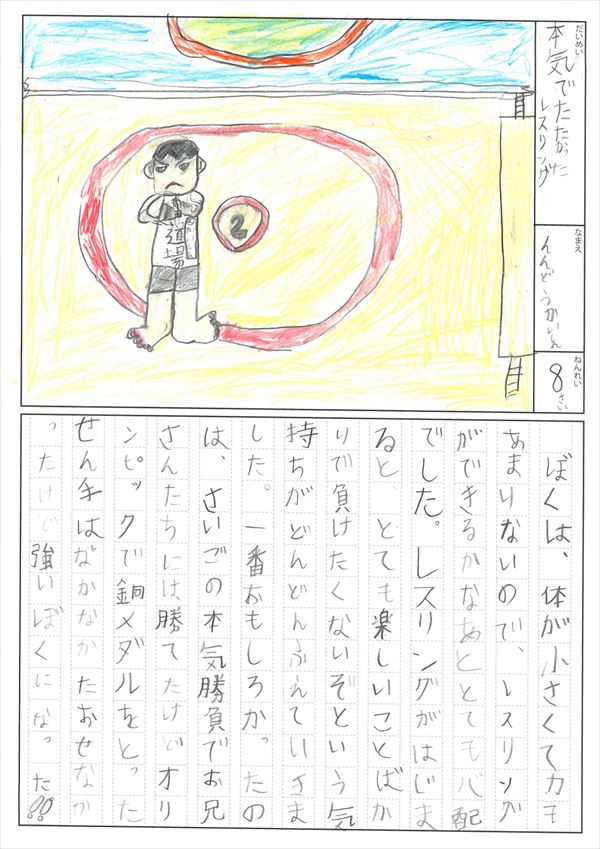 だいめい
本気でたたかった
レスリング
なまえ
ねんれい
8さい
道場
2
ぼくは、体が小さくて力も
あまりないので、レスリング
ができるかなあととても心配
でした。レスリングがはじま
ると、とても楽しいことばか
りで負けたくないぞという気
持ちがどんどんふえていきま
した。一番おもしろかったの
は、さいごの本気勝負でお兄
さんたちには勝てたけどオリ
ンピックで銅メダルをとった
せん手はなかなかたおせなか
ったけど強いぼくになった!!